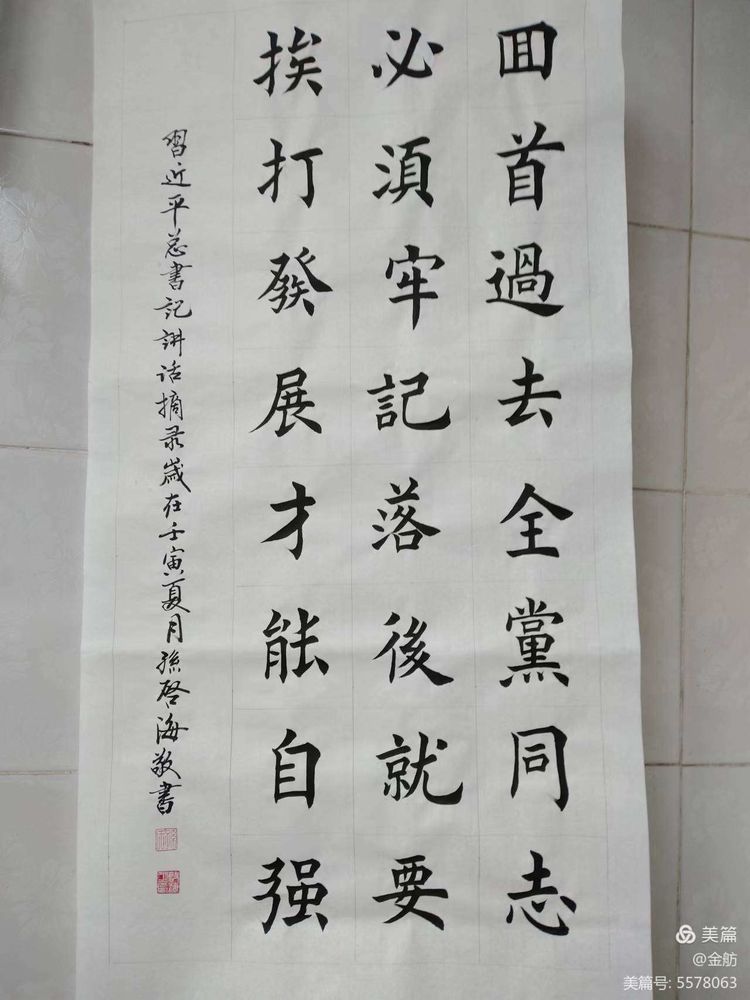 囬首過去全黨同志
必須牢記落後就要
挨打發展才能自强
習近平总書記講话摘录歲在壬寅夏月孫啓海敬書
美篇
@金舫
美篇号: 5578063